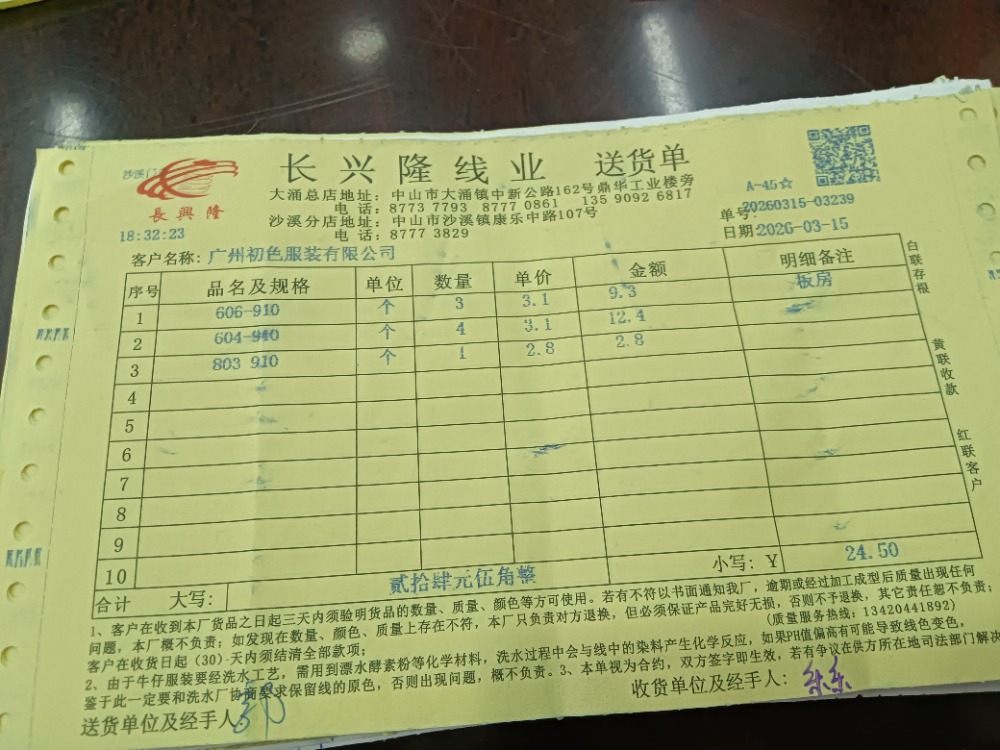 长兴隆线业 送货单
沙溪门
長興隆
大涌总店地址：中山市大涌镇中新公路162号鼎华工业楼旁
电 话：8773 7793 8777 0861 135 9092 6817
沙溪分店地址：中山市沙溪镇康乐中路107号
电 话：8777 3829
A-45☆
单号：20260315-03239
日期：2026-03-15
18:32:23
客户名称：广州初色服装有限公司
序号 品名及规格 单位 数量 单价 金额 明细备注
1 606-910 个 3 3.1 9.3 板房
2 604-940 个 4 3.1 12.4
3 803 910 个 1 2.8 2.8
4
5
6
7
8
9
10
合计 大写： 贰拾肆元伍角整 小写：￥ 24.50
白联存根
黄联收款
红联客户
1、客户在收到本厂货品之日起三天内须验明货品的数量、质量、颜色等方可使用。若有不符以书面通知我厂，逾期或经过加工成型后质量出现任何
问题，本厂概不负责；如发现在数量、颜色、质量上存在不符，本厂只负责对方退换，但必须保证产品完好无损，否则不予退换，其它责任恕不负责；
客户在收货日起（30）天内须结清全部款项； （质量服务热线：13420441892）
2、由于牛仔服装要经洗水工艺，需用到漂水酵素粉等化学材料，洗水过程中会与线中的染料产生化学反应，如果PH值偏高有可能导致线色变色，
鉴于此一定要和洗水厂协商要求保留线的原色，否则出现问题，概不负责。3、本单视为合约，双方签字即生效，若有争议在供方所在地司法部门解决
送货单位及经手人： 收货单位及经手人：